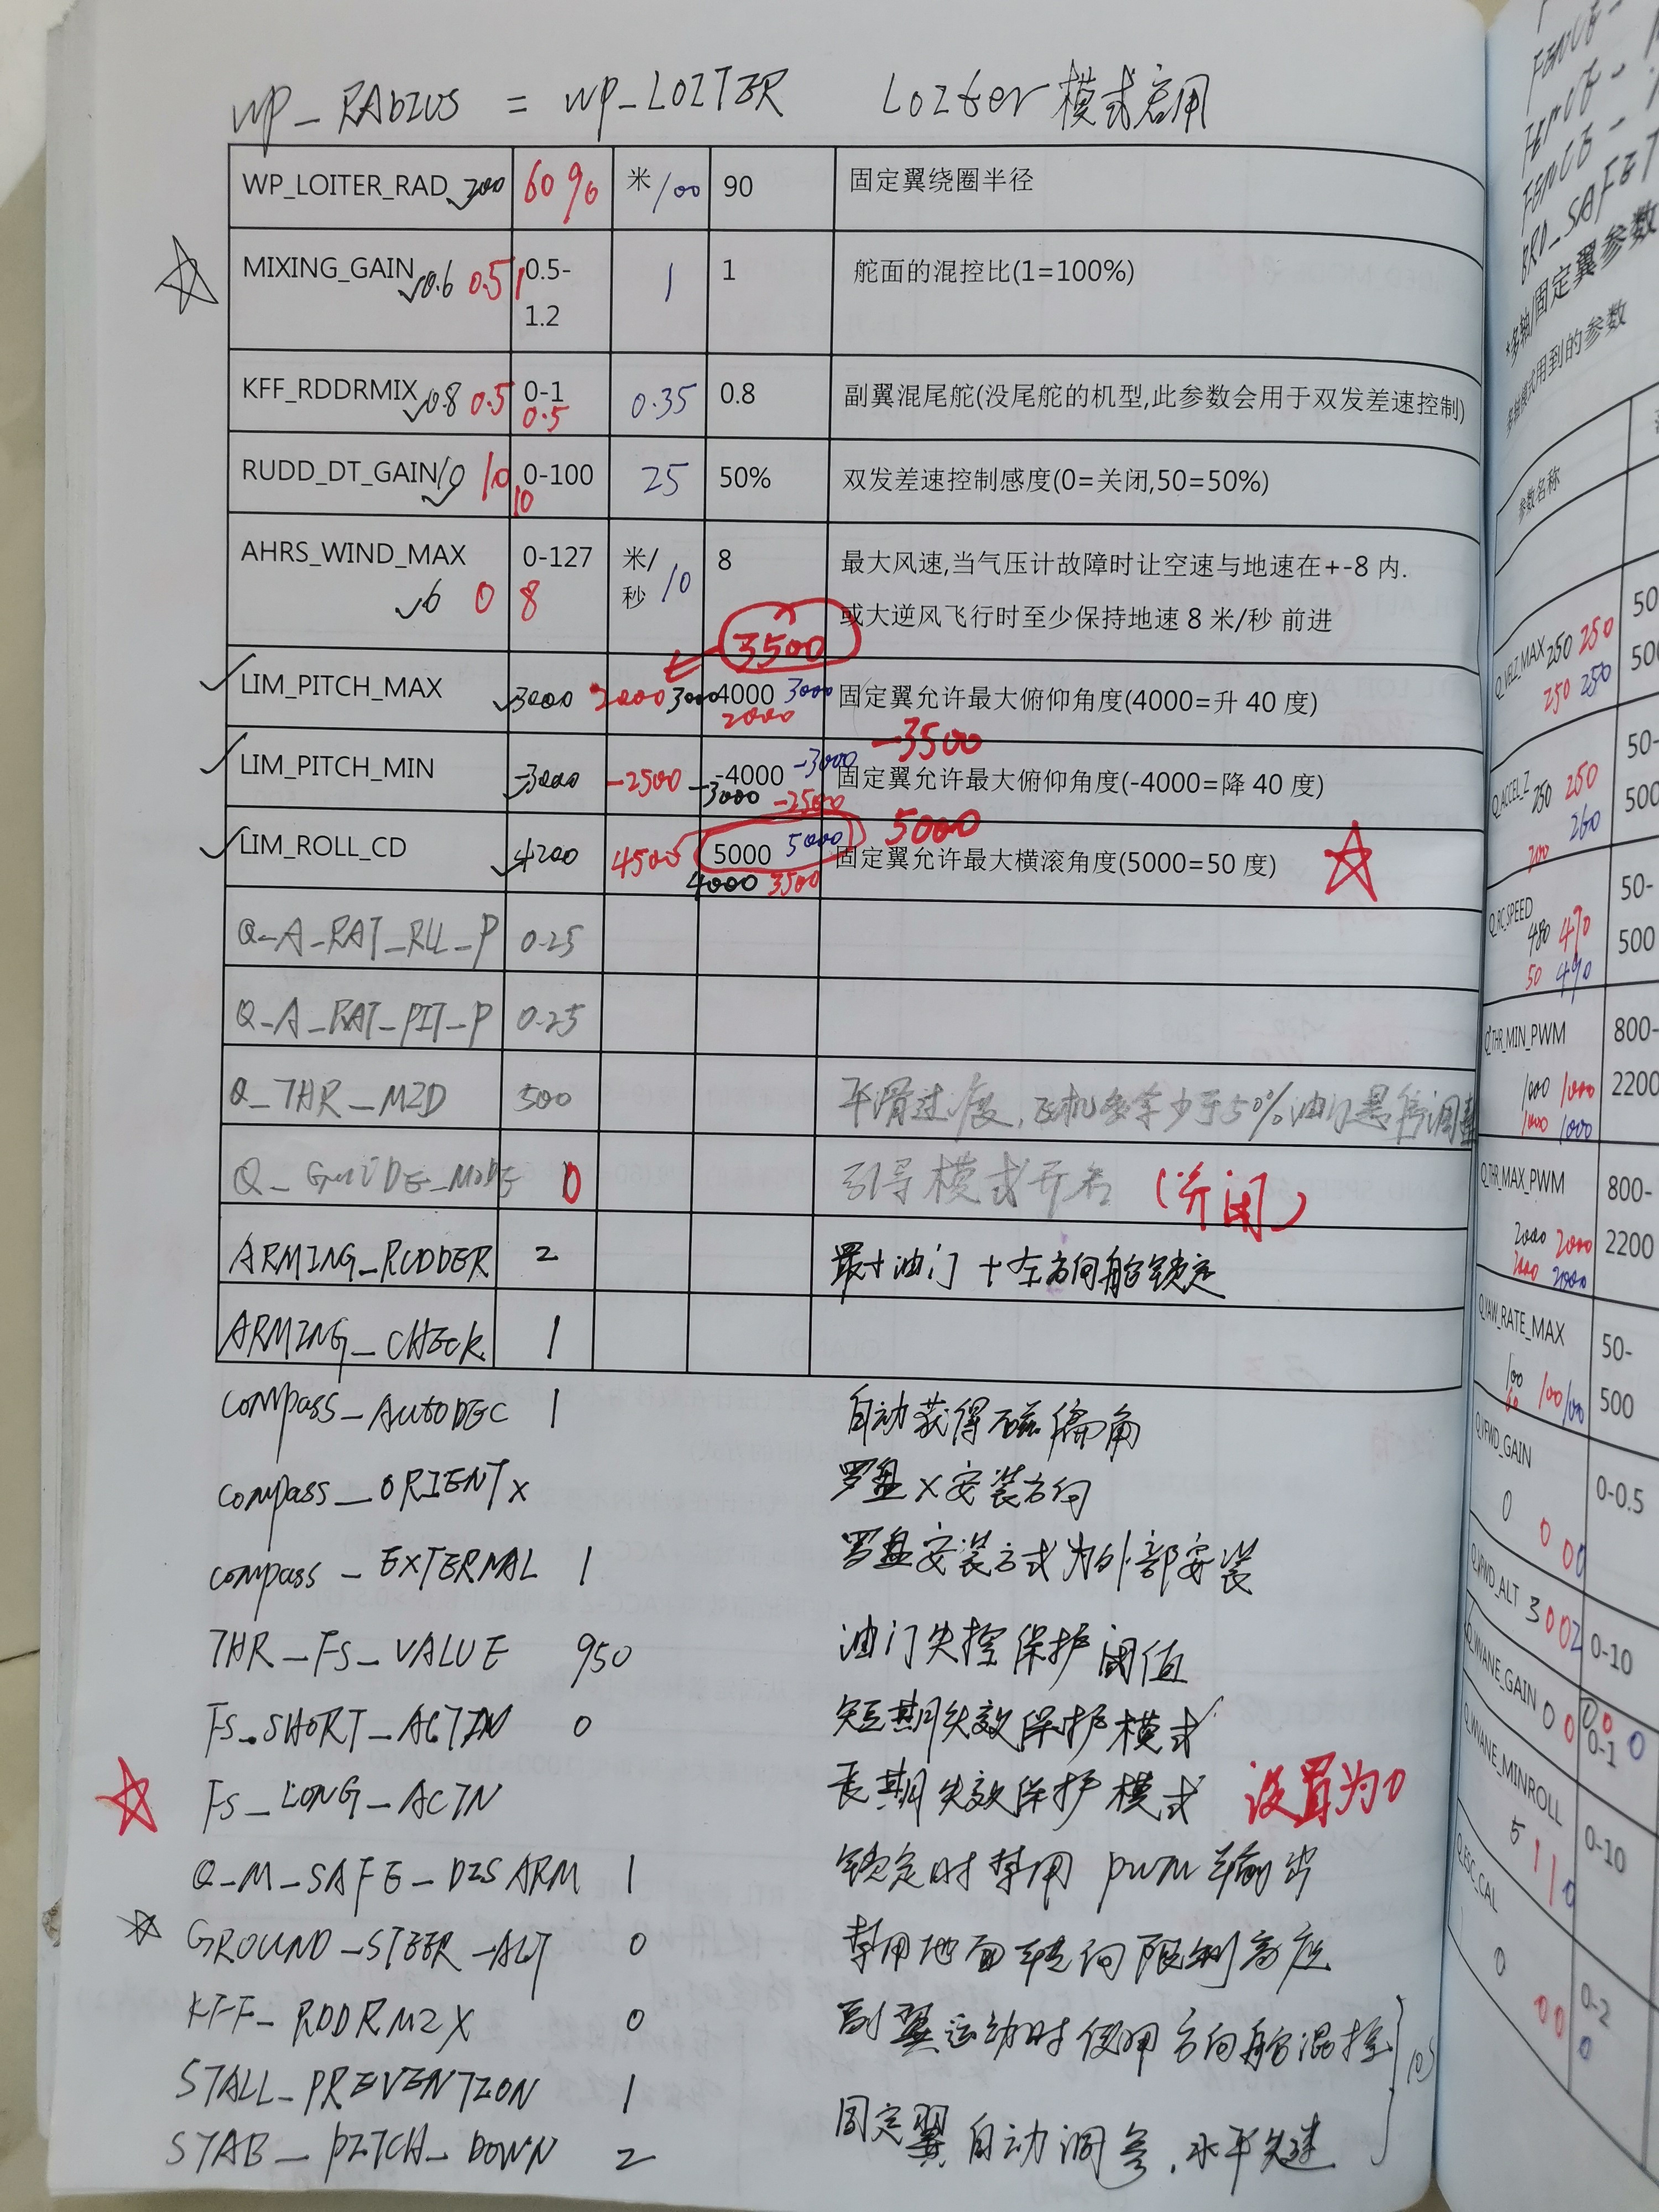 WP_RADIUS = WP_LOITER Loiter模式启用
WP_LOITER_RAD 200 60% 米 100 90 固定翼绕圈半径
MIXING_GAIN 0.6 0.5 1 0.5-1.2 1 1 舵面的混控比(1=100%)
KFF_RDDRMIX 0.8 0.5 0-1 0.5 0.35 0.8 副翼混尾舵(没尾舵的机型,此参数会用于双发差速控制)
RUDD_DT_GAIN 10 10 0-100 10 25 50% 双发差速控制感度(0=关闭,50=50%)
AHRS_WIND_MAX 0-127 米/秒 10 8 最大风速,当气压计故障时让空速与地速在+-8 内.
6 0 8 或大逆风飞行时至少保持地速 8 米/秒 前进
3500
LIM_PITCH_MAX 3000 2000 3000 4000 3000 2000 固定翼允许最大俯仰角度(4000=升 40 度)
-3500
LIM_PITCH_MIN -3000 -2500 -4000 -3000 -3000 -2500 固定翼允许最大俯仰角度(-4000=降 40 度)
5000
LIM_ROLL_CD 4200 4500 5000 5000 4000 3500 固定翼允许最大横滚角度(5000=50 度)
Q_A_RAT_RLL_P 0.25
Q_A_RAT_PIT_P 0.25
Q_THR_MID 500 平滑过度,飞机多余少于50%油门悬停调整
Q_GUIDE_MODE 0 引导模式开启 (关闭)
ARMING_RUDDER 2 最大油门+左方向舵锁定
ARMING_CHECK 1
COMPASS_AUTODEC 1 自动获得磁偏角
COMPASS_ORIENT X 罗盘X安装方向
COMPASS_EXTERNAL 1 罗盘安装方式为外部安装
THR_FS_VALUE 950 油门失控保护阈值
FS_SHORT_ACTIN 0 短期失效保护模式
FS_LONG_ACTN 长期失效保护模式 设置为0
Q_M_SAFE_DISARM 1 锁定时禁用PWM输出
GROUND_STEER_ALT 0 禁用地面转向限制高度
KFF_RDDRMIX 0 副翼运动时使用方向舵混控
STALL_PREVENTION 1
STAB_PITCH_DOWN 2 固定翼自动调参,水平失速
BRD_SAFET
*多轴/固定翼参数
多轴模式用到的参数
参数名称
Q_VELZ_MAX 250 250 50
250 250 500
Q_ACCEL_Z 250 250 50-
200 260 500
Q_RC_SPEED 480 470 50-
50 490 500
Q_THR_MIN_PWM 800-
1000 1000 2200
1000 1000
Q_THR_MAX_PWM 800-
2000 2000 2200
2000 2000
Q_YAW_RATE_MAX 50-
100 100 100 500
60
Q_VFWD_GAIN 0-0.5
0 0 0 0
Q_VFWD_ALT 3 0 0 2 0-10
Q_WVANE_GAIN 0 0 0 0 0-1 0
Q_WVANE_MINROLL 0-10
5 1 1 0
Q_ESC_CAL 0-2
0 0 0 0